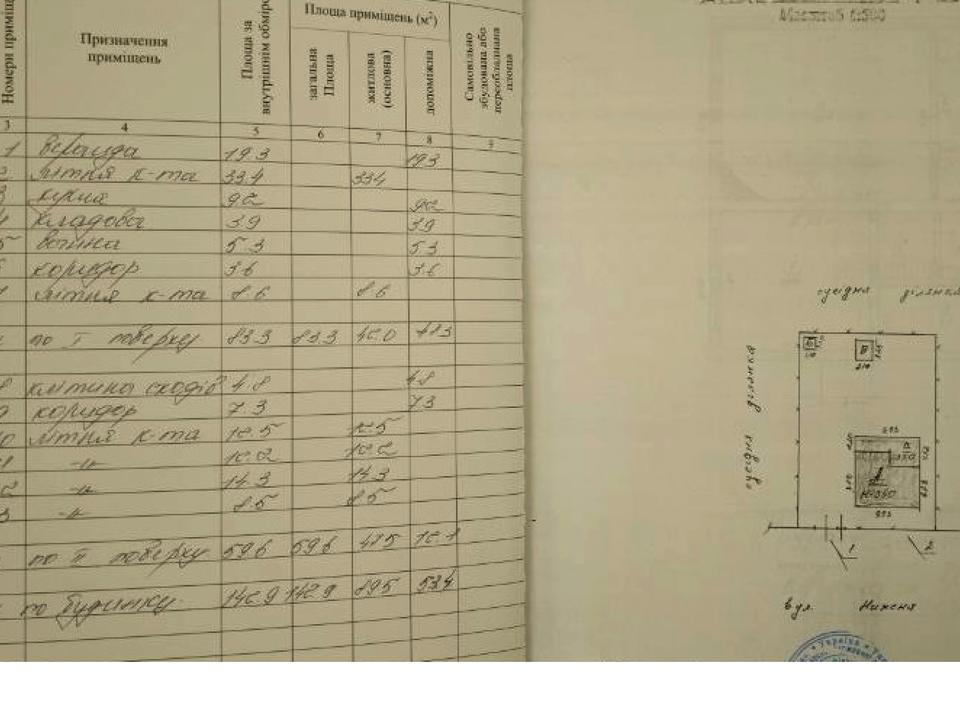 Номери приміщ
Призначення приміщень
Площа за внутрішнім обміро
Площа приміщень (м²)
загальна Площа
житлова (основна)
допоміжна
Самовільно збудована або переобладнана площа
3 4 5 6 7 8 9
1 веранда 19.3 19.3
2 літня к-та 33.4 33.4
3 кухня 9.2 9.2
4 кладова 3.9 3.9
5 ванна 5.3 5.3
коридор 3.6 3.6
літня к-та 8.6 8.6
по I поверху 83.3 83.3 42.0
8 клітина сходів 4.8 4.8
коридор 7.3 7.3
літня к-та 12.5 12.5
-"- 12.2 12.2
-"- 14.3 14.3
3 -"- 8.5 8.5
по II поверху 59.6 59.6 12.1
по будинку 142.9 142.9 89.5 53.4
Масштаб 1:500
сусідня ділянка
сусідня ділянка
1 2
вул. Нижня
Україна